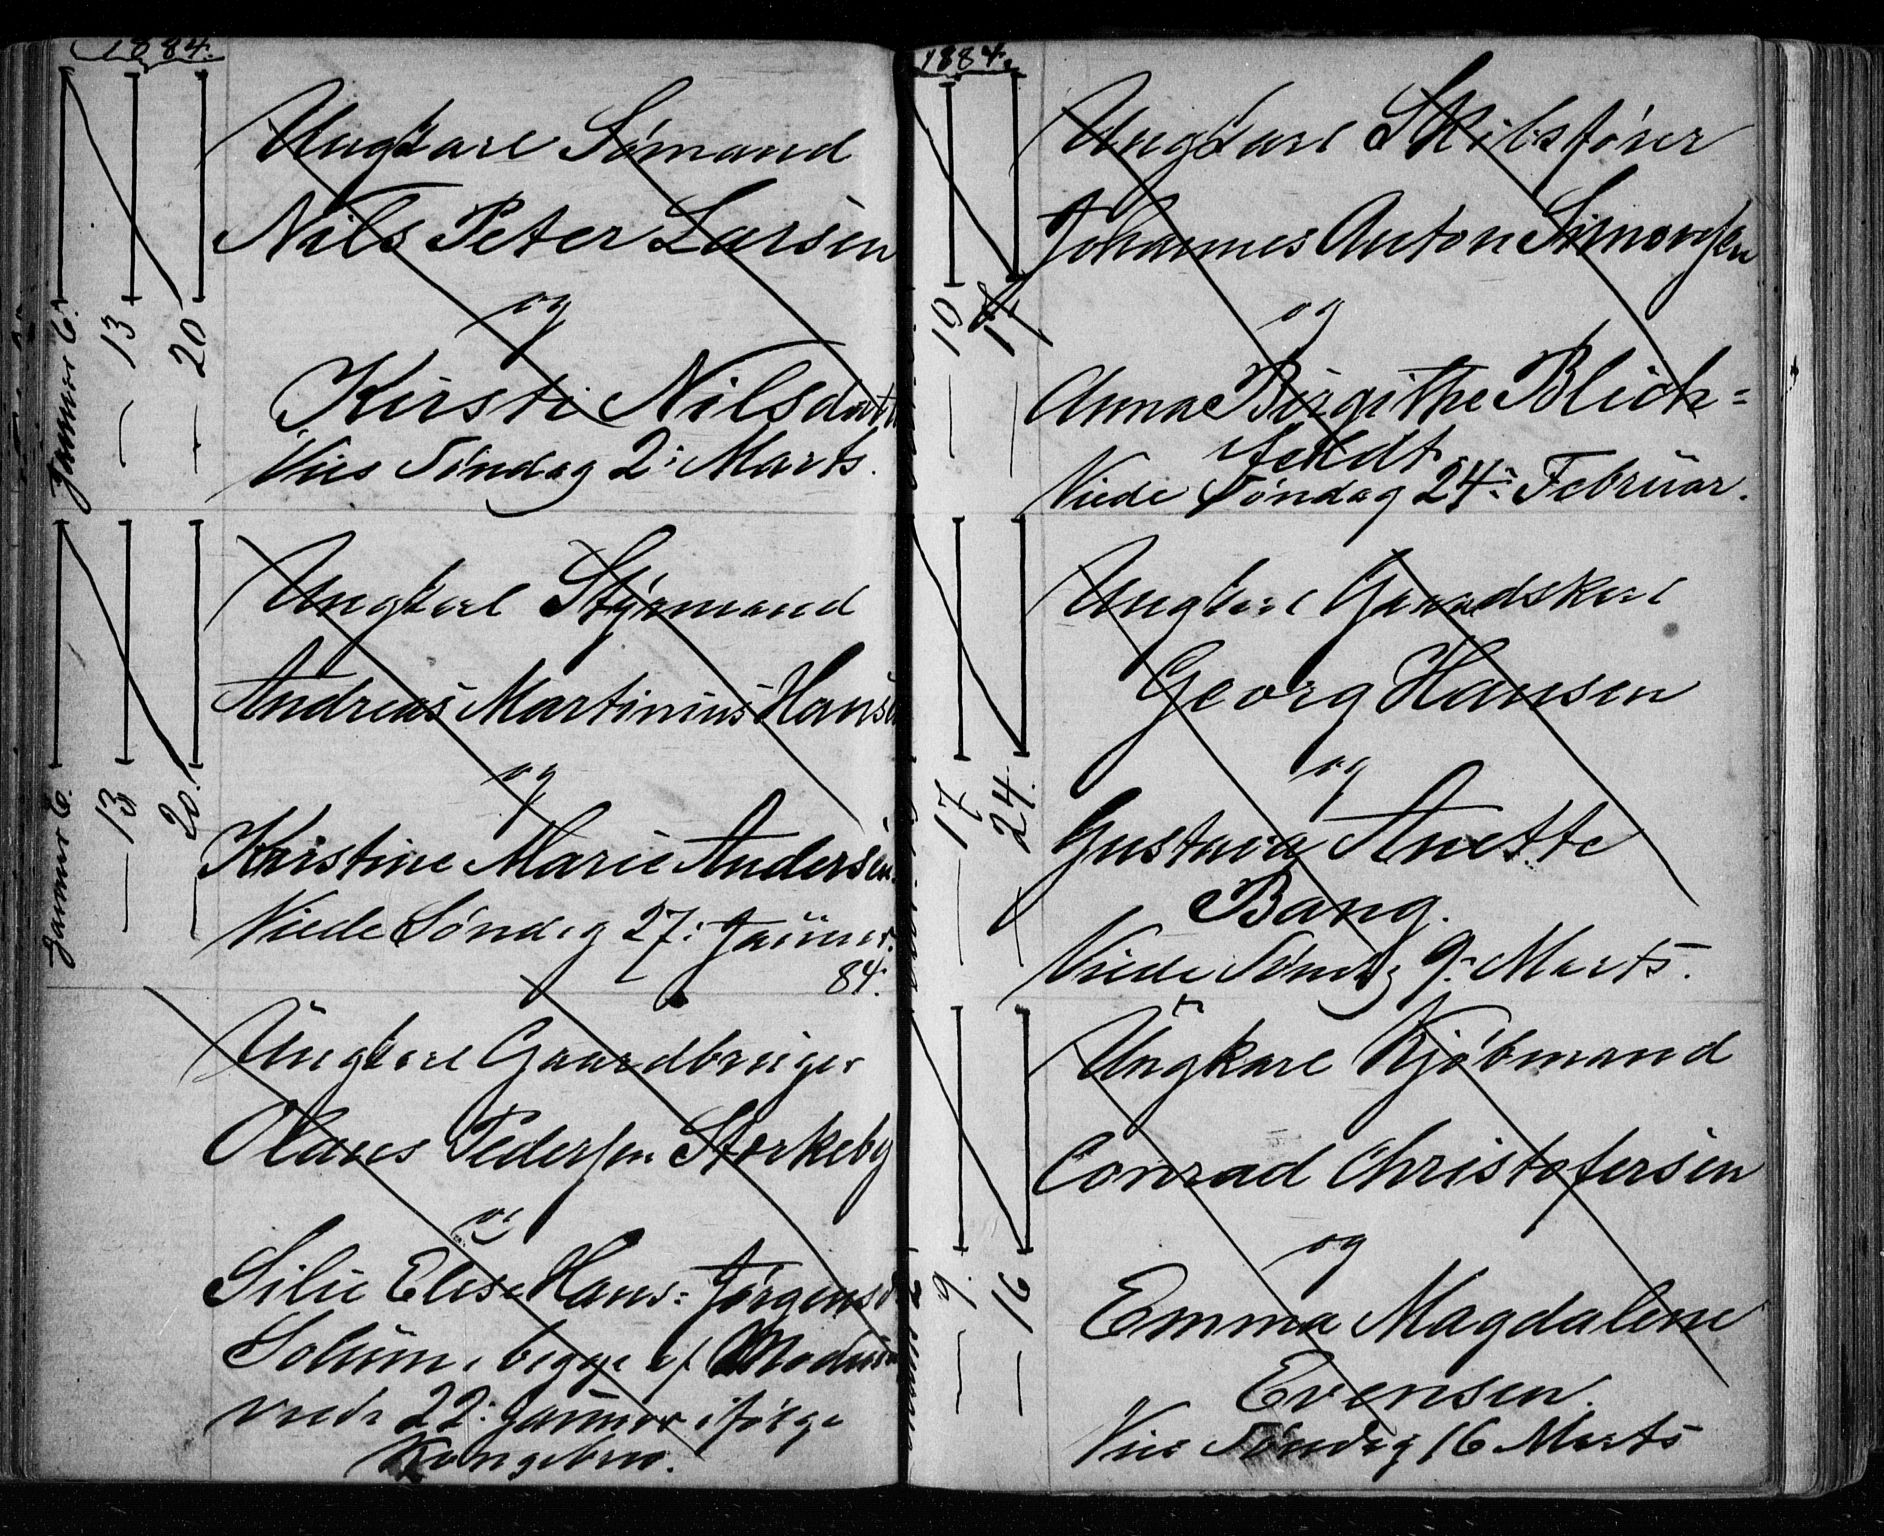 1884.
Ungkarl Sømand
Nils Peter Larsen
og
Kirsti Nilsdatt
Vies Søndag 2: Marts.
Januar 6. — 13 — 20
Ungkarl Styrmand
Andreas Martinius Hansen
og
Kristine Marie Andersen
Viede Søndag 27: Januar.
84.
Januar 6. — 13 — 20.
Ungkarl Gaardbruger
Olaves Pedersen Størkeby
og
Silie Elise Hans-Jørgensd.
Solum, begge af Modum
viede 22: Januar ifølge
Kongebrev.
1884.
Ungkarl Skibsfører
Johannes Anton Simonsen
og
Anna Birgithe Blich=
feldt
Viede Søndag 24: Februar.
— 10 — 17
Ungkarl Gaardskarl
Georg Hansen
og
Gustava Anette
Bang.
Viede Søndag 9: Marts.
— 17 — 24.
Ungkarl Kjøbmand
Conrad Christofersen
og
Emma Magdalene
Evensen.
Vies Søndag 16 Marts
— 9. — 16